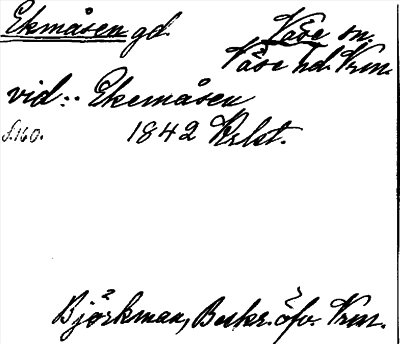 Ekmåsen gd. Väse sn.
Väse hd. Vrm.
vid: Ekemåsen
s. 160. 1842 Krlst.
Björkman, Beskr. öfv. Vrm.